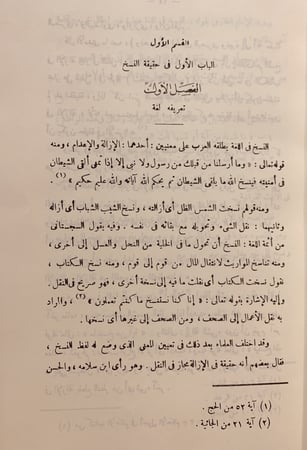 القسم الأول
الباب الأول فى حقيقة النسخ
الفصل الأول
تعريفه لغة
النسخ فى اللغة يطلقه العرب على معنيين : أحدهما : الإزالة والإعدام ، ومنه
قوله تعالى : « وما أرسلنا من قبلك من رسول ولا نبى إلا إذا تمنى ألقى الشيطان
فى أمنيته فينسخ الله ما يلقى الشيطان ثم يحكم الله آياته والله عليم حكيم » (١) .
ومنه قولهم نسخت الشمس الظل أى أزالته ، ونسخ الشيب الشباب أى أزاله
وثانيهما : نقل الشىء وتحويله مع بقائه فى نفسه . وفيه يقول السجستانى
من أئمة اللغة : النسخ أن تحول ما فى الخلية من النحل والعسل إلى أخرى ،
ومنه تناسخ المواريث لانتقال المال من قوم إلى قوم ، ومنه نسخ الكتاب ،
نقول نسخت الكتاب أى نقلت ما فيه إلى صحة أخرى ، فهو صريح فى النقل .
وإليه الإشارة بقوله تعالى : « إنا كنا نستنسخ ما كنتم تعملون » (٢) ، والمراد
به نقل الأعمال إلى الصحف ، ومن الصحف إلى غيرها أى نسخها .
وقد اختلف العلماء بعد ذلك فى تعيين المعنى الذى وضع له لفظ النسخ ،
فقال بعضهم أنه حقيقة فى الإزالة مجاز فى النقل . وهو رأى ابن سلامه ، والحسن
(١) آية ٥٢ من الحج .
(٢) آية ٢١ من الجاثية .